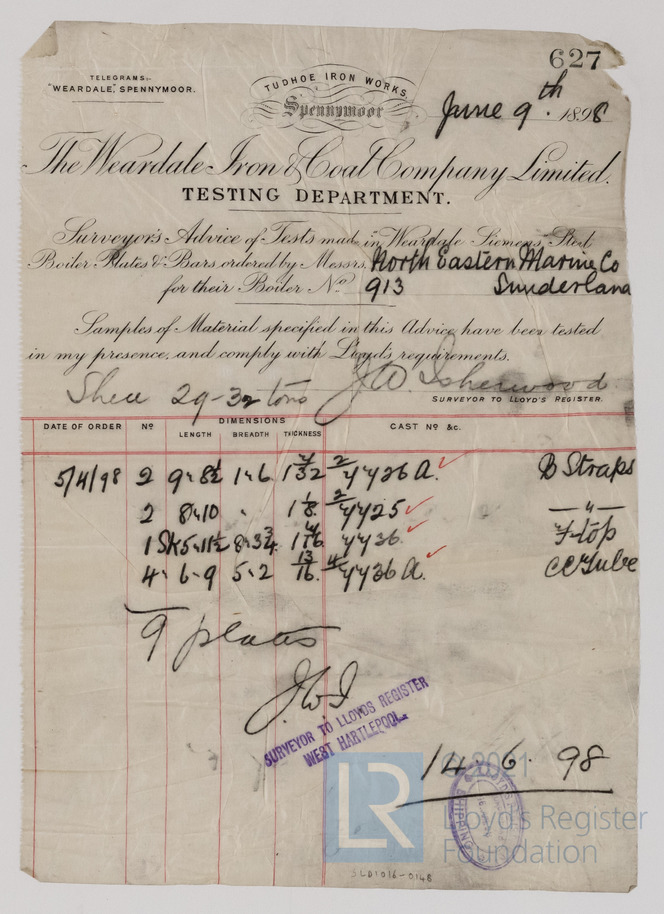 627
TELEGRAMS:-
"WEARDALE," SPENNYMOOR.
TUDHOE IRON WORKS,
Spennymoor
June 9th. 1898
The Weardale Iron & Coal Company Limited.
TESTING DEPARTMENT.
Surveyor's Advice of Tests made in Weardale Siemens Steel
Boiler Plates & Bars ordered by Messrs. North Eastern Marine Co
for their Boiler No. 913 Sunderland
Samples of Material specified in this Advice have been tested
in my presence, and comply with Lloyd's requirements.
29-32 tons J.W. Isherwood
SURVEYOR TO LLOYD'S REGISTER.
DATE OF ORDER No. DIMENSIONS CAST No. &c.
LENGTH BREADTH THICKNESS
5/4/98 2 9" 8½ 1" 6 2/4426 A. B Straps
2 8"10 " 1 1/8 2/4425 — " —
1 5"11½ 8"3¾ 4436
4" 6-9 5"2 13/16 4/4436 A.
9 plates
J.W.I
SURVEYOR TO LLOYDS REGISTER
WEST HARTLEPOOL
14. 6. 98
© 2021
LR
Lloyd's Register
Foundation
SLD1016-0148